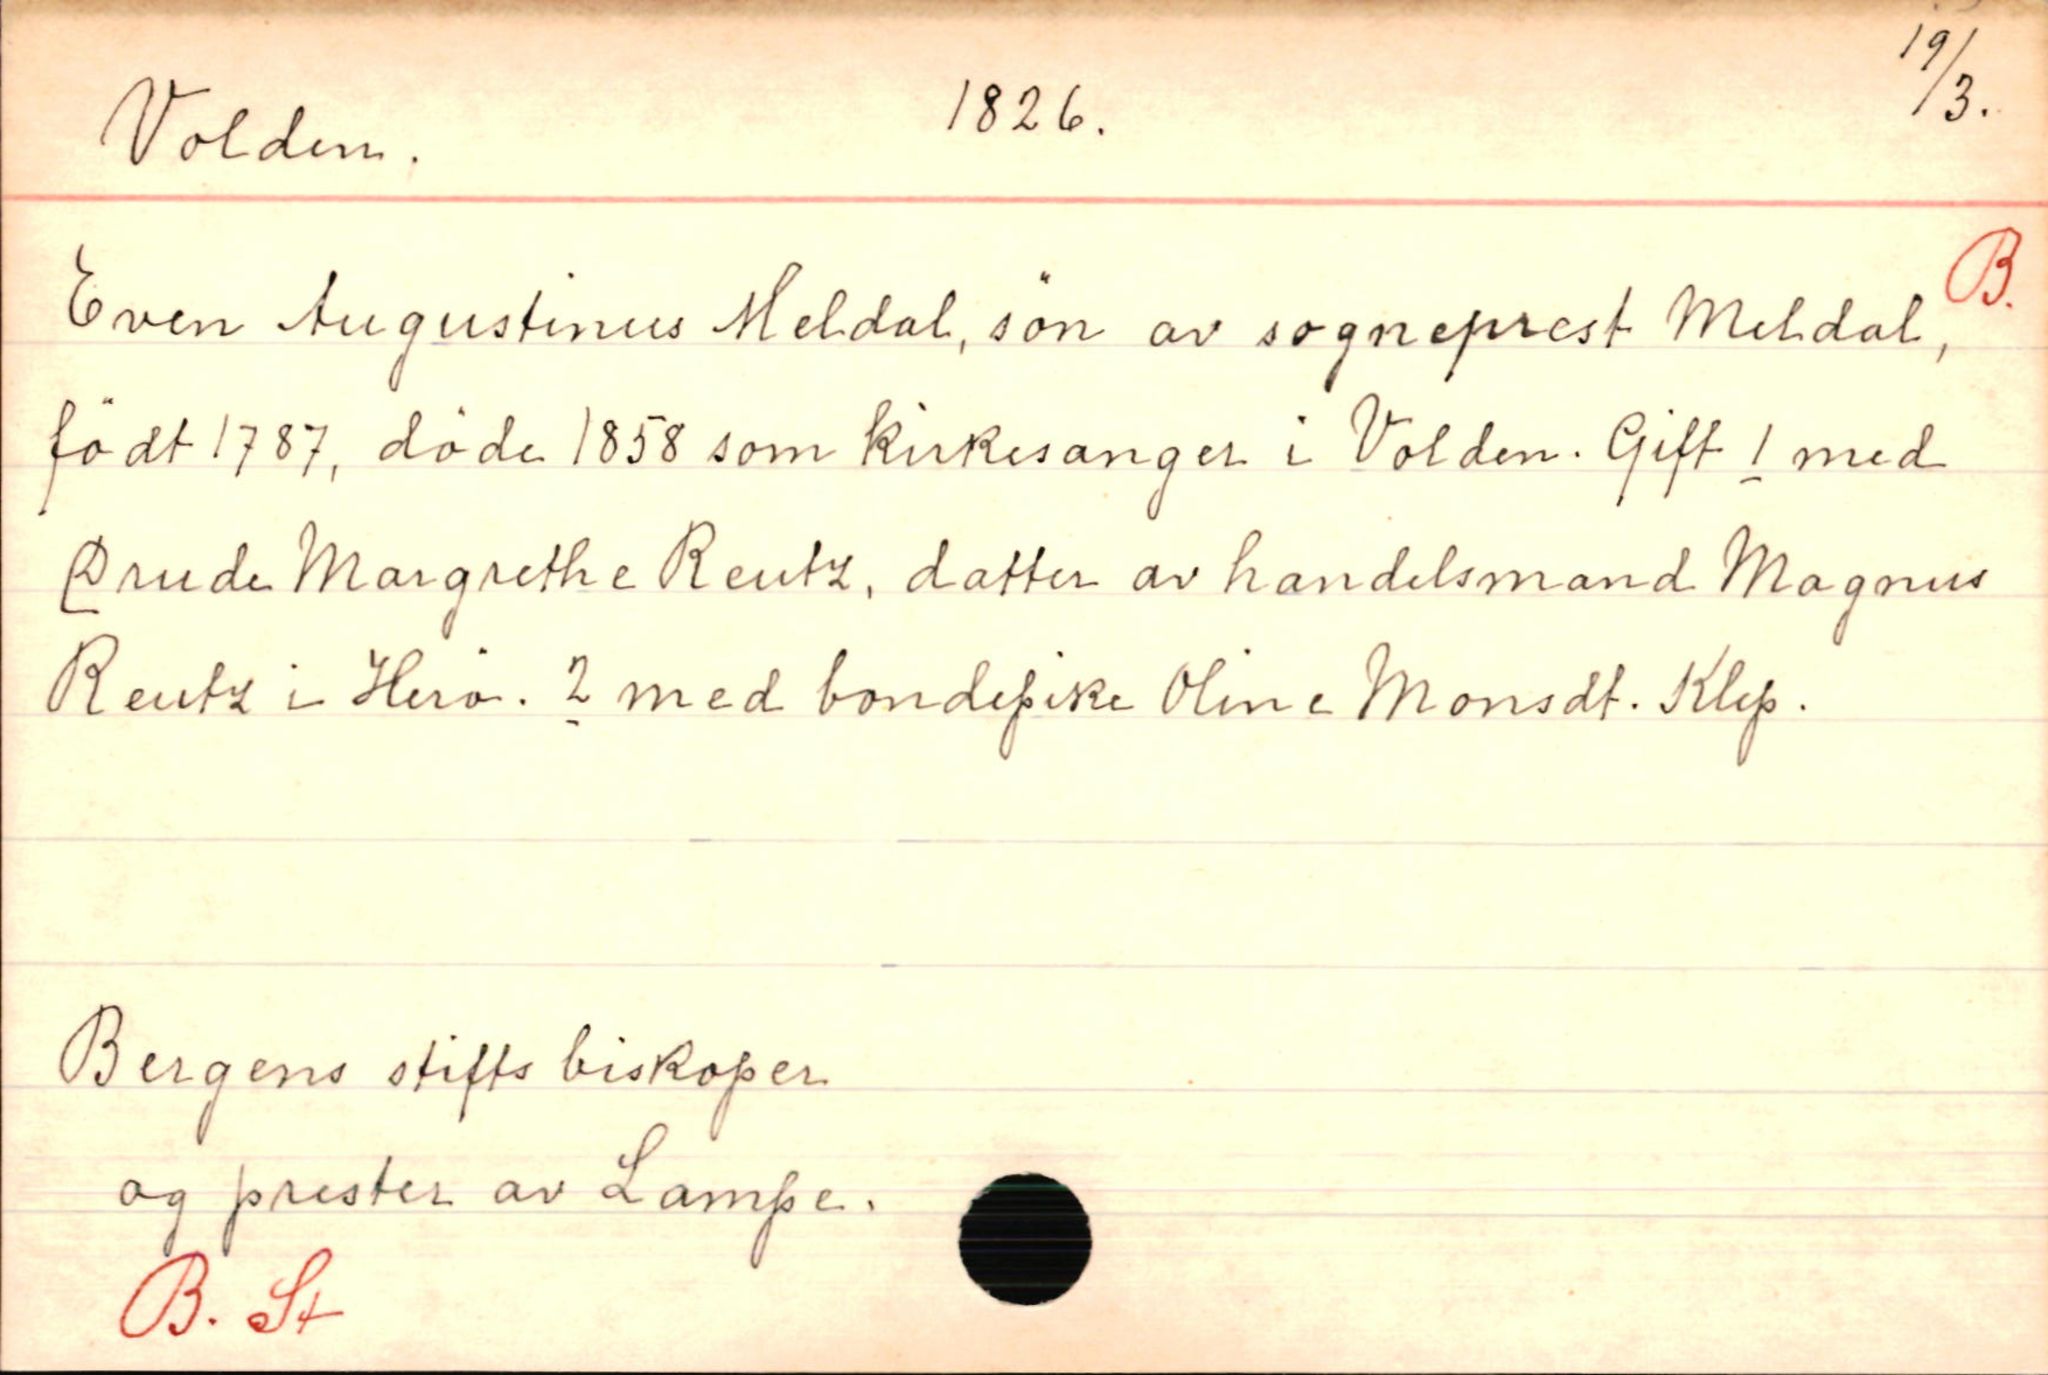 Volden. 1826. 19/3.
B.
Even Augustinus Meldal, sön av sogneprest Meldal,
födt 1787, döde 1858 som kirkesanger i Volden. Gift 1 med
Drude Margrethe Reutz, datter av handelsmand Magnus
Reutz i Herö. 2 med bondepike Oline Monsdt. Klep.
Bergens stifts biskoper
og prester av Lampe.
B. St